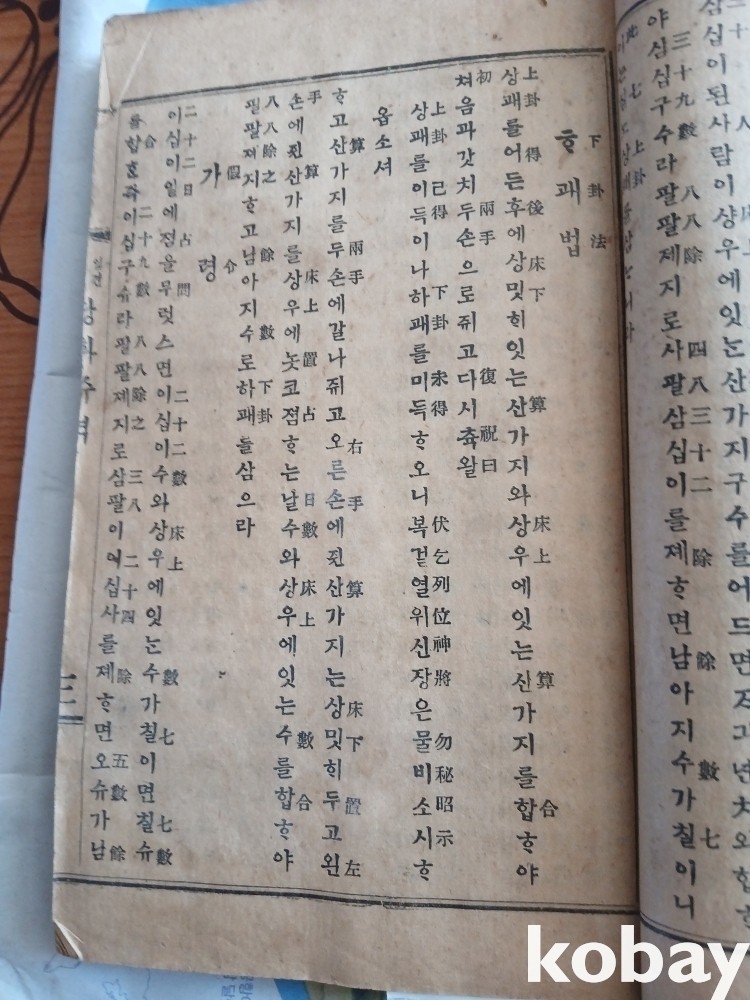 三十九數 八八除 四八三十二 除 餘數七
야십십구수라팔팔제지로사팔삼십이를졔ᄒᆞ면남아지수가칠이니
下卦法
ᄒᆞ괘법
上卦 得後床下 算 床上 算 合
상괘를어든후에상밋ᄒᆡ잇는산가지와상우에잇는산가지를합ᄒᆞ야
初 兩手 復祝曰
쳐음과갓치두손으로쥐고다시츅왈
上卦已得 下卦未得 伏乞列位神將 勿秘昭示
상괘를이득이나하괘를미득ᄒᆞ오니복걸열위신장은물비소시ᄒᆞ
옵소셔
算 兩手 右手 算 床下置左
ᄒᆞ고산가지를두손에갈나쥐고오른손에쥔산가지는상밋히두고왼
手 算 床上置占 日數 床上 數合
손에쥔산가지를상우에놋코졈ᄒᆞ는날수와상우에잇는수를합ᄒᆞ야
八八除之 餘數 下卦
팔팔졔지ᄒᆞ고남아지수로하괘를삼으라
假令
가령
二十二日占問 二十二數 床上 數七 七數
이십이일에졈을무럿스면이십이수와상우에잇는수가칠이면칠슈
合 二十九數 八八除之 三八 二十四 除 五數餘
를합ᄒᆞ즉이십구슈라팔팔졔지로삼팔이여십사를졔ᄒᆞ면오슈가남
三
kobay